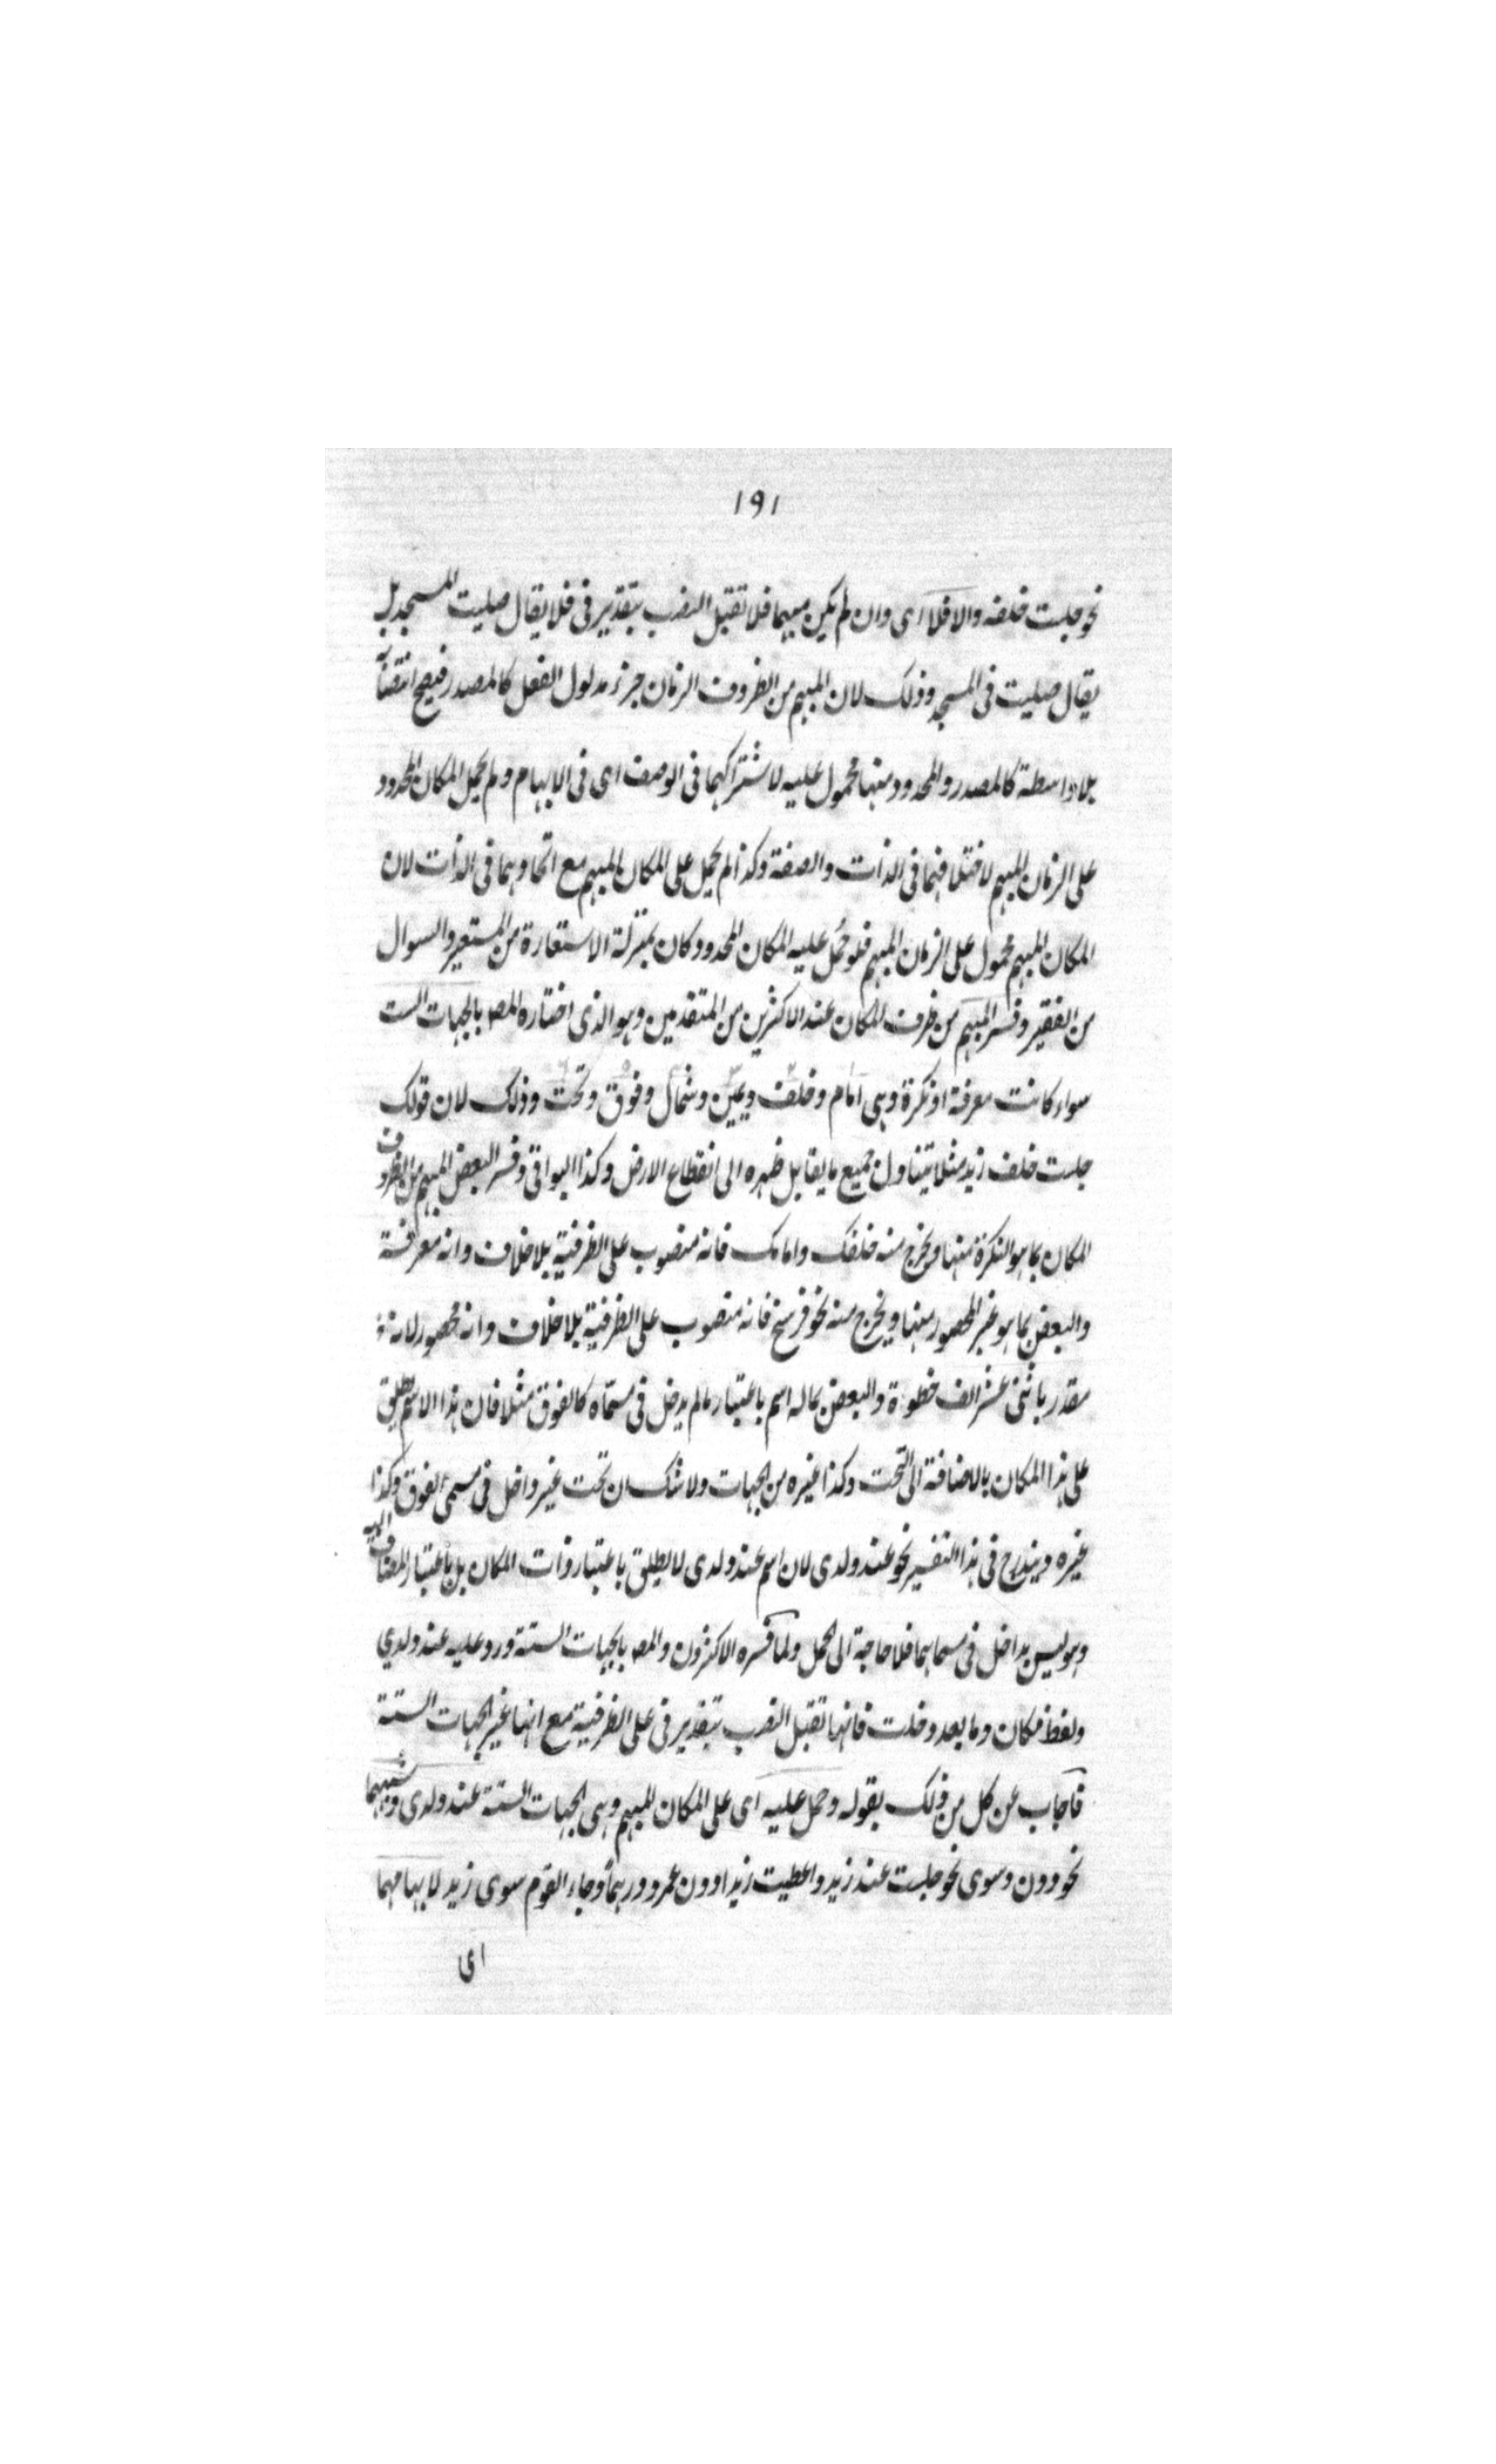 ١٩١
نحو جلست خلفه والا فلا اى وان لم يكن مبهما فلا تقبل النصب بتقدير فى فلا يقال صليت المسجد بل
يقال صليت فى المسجد وذلك لان المبهم من الظروف الزمان جزء مدلول الفعل كالمصدر فيصح انتصابه
بلا واسطة كالمصدر والمحدود منها محمول عليه لاشتراكهما فى الوصف اى فى الابهام ولم يحمل المكان المحدود
على الزمان المبهم لاختلافهما فى الذات والصفة وكذا لم يحمل على المكان المبهم مع اتحادهما فى الذات لان
المكان المبهم محمول على الزمان المبهم فلو حُمل عليه المكان المحدود كان بمنزلة الاستعارة من المستعير والسوال
من الفقير وفسر المبهم من ظرف المكان عند الاكثرين من المتقدمين وهو الذى اختاره المصـ بالجهات الست
سواء كانت معرفة او نكرة وهى امام وخلف ويمين وشمال وفوق وتحت وذلك لان قولك
جلست خلف زيد مثلا يتناول جميع ما يقابل ظهره الى انقطاع الارض وكذا البواقى وفسر البعض المبهم من الظروف
المكان بما هو النكرة منها ويخرج منه خلفك وامامك فانه منصوب على الظرفية بلا خلاف وانه معرفة
والبعض بما هو غير المحصور منها ويخرج منه نحو فرسخ فانه منصوب على الظرفية بلا خلاف وانه محصور لانه
مقدر باثنى عشر الف خطوة والبعض بما له اسم باعتبار ما لم يدخل فى مسماه كالفوق مثلا فان هذا الاسم يطلق
على هذا المكان بالاضافة الى التحت وكذا غيره من الجهات ولا شك ان تحت غير داخل فى مسمى الفوق وكذا
غيره ويندرج فى هذا التفسير نحو عند ولدى لان اسم عند ولدى لا يطلق باعتبار ذات المكان بل باعتبار المضاف اليه
وهو ليس بداخل فى مسماهما فلا حاجة الى الحمل ولما فسره الاكثرون والمصـ بالجهات الستة ورد عليه عند ولدي
ولفظ مكان وما بعد دخلت فانها تقبل النصب بتقدير فى على الظرفية مع انها غير الجهات الستة
فاجاب عن كل من ذلك بقوله وحمل عليه اى على المكان المبهم وهى الجهات الستة عند ولدى وشبههما
نحو دون وسوى نحو جلست عند زيد واعطيت زيدا دون عمرو درهما وجاء القوم سوى زيد لابهامهما
اى